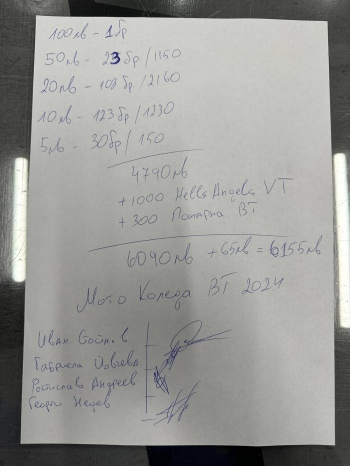 100лв - 1бр
50лв - 23бр/1150
20лв - 108бр/2160
10лв - 123бр/1230
5лв - 30бр/150
4790лв
+1000 Hells Angels VT
+300 Пожарна ВТ
6090лв +65лв = 6155лв
Мото Коледа ВТ 2024
Иван
Габриела Йовчева
Ростислав Андреев
Георги Нешев